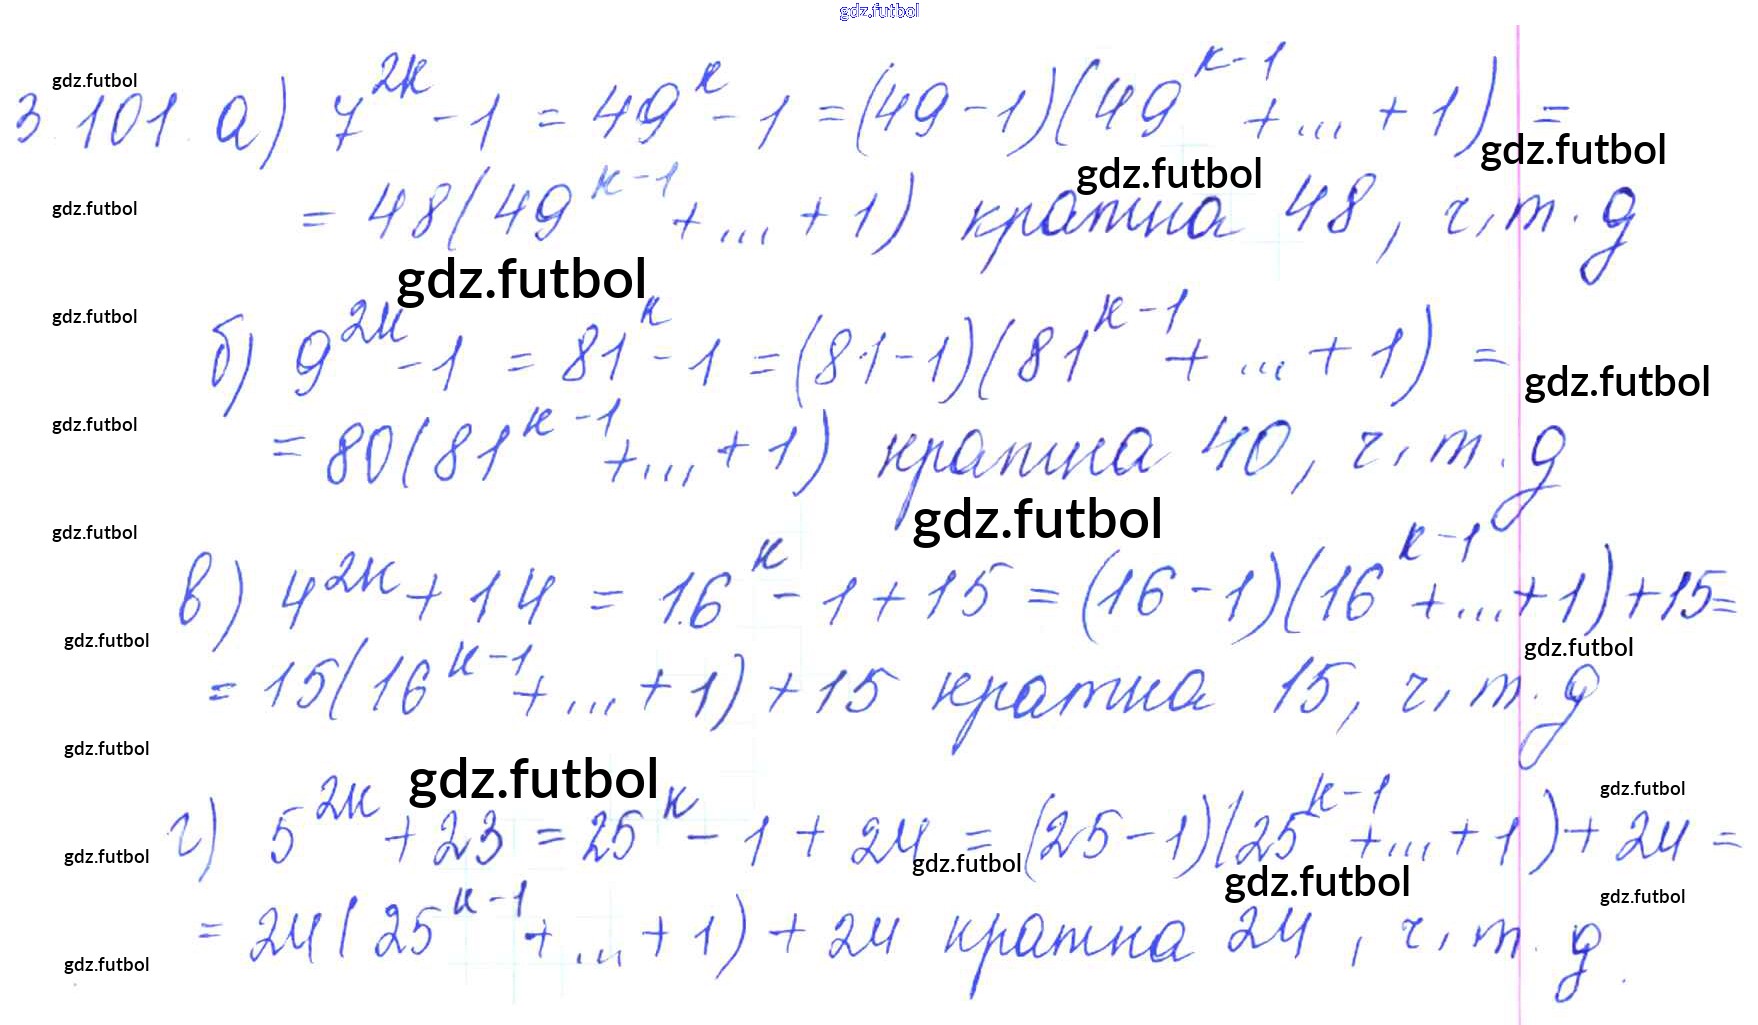 gdz.futbol
gdz.futbol
3.101. а) 7^{2k} - 1 = 49^k - 1 = (49 - 1)(49^{k-1} + ... + 1) =
gdz.futbol
gdz.futbol
gdz.futbol
= 48(49^{k-1} + ... + 1) кратна 48, ч.т.д
gdz.futbol
gdz.futbol
б) 9^{2k} - 1 = 81^k - 1 = (81 - 1)(81^{k-1} + ... + 1) =
gdz.futbol
gdz.futbol
= 80(81^{k-1} + ... + 1) кратна 40, ч.т.д
gdz.futbol
gdz.futbol
в) 4^{2k} + 14 = 16^k - 1 + 15 = (16 - 1)(16^{k-1} + ... + 1) + 15 =
gdz.futbol
gdz.futbol
= 15(16^{k-1} + ... + 1) + 15 кратна 15, ч.т.д
gdz.futbol
gdz.futbol
gdz.futbol
г) 5^{2k} + 23 = 25^k - 1 + 24 = (25 - 1)(25^{k-1} + ... + 1) + 24 =
gdz.futbol
gdz.futbol
gdz.futbol
gdz.futbol
= 24(25^{k-1} + ... + 1) + 24 кратна 24, ч.т.д.
gdz.futbol